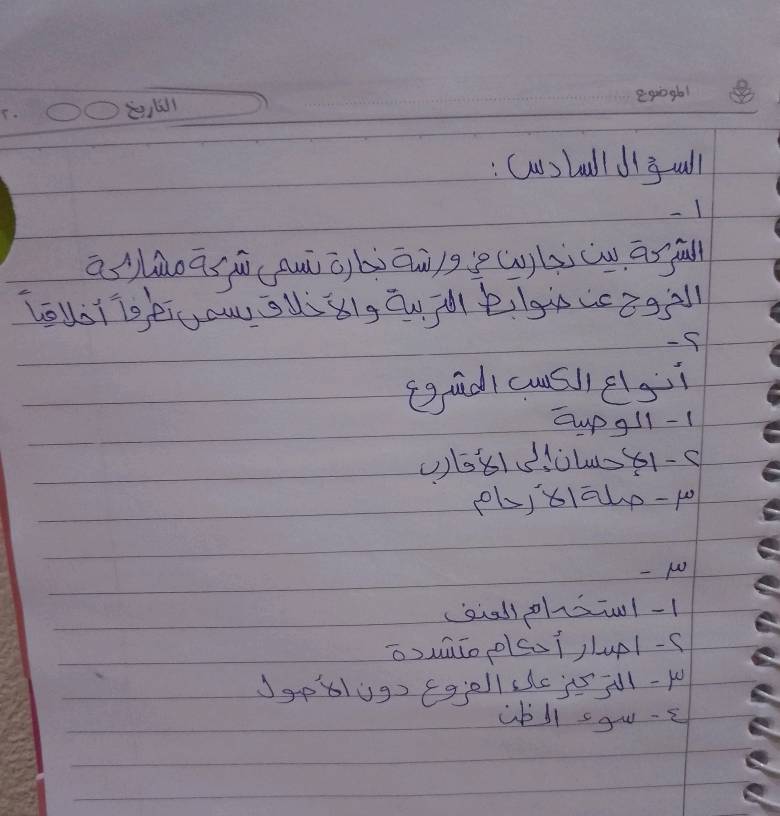 الموضوع
التاريخ
السؤال السادس :
١-
الشركة بين نجارين في ورشة نجارة تسمى شركة مشاركة
الخروج عن ضوابط التربية والأخلاق يسمى تطرفاً أخلاقياً
٢-
أنواع الكسب المشروع
١- الوصية
٢- الإحسان إلى الأقارب
٣- صلة الأرحام
٣-
١- استخدام العنف
٢- اصدار أحكام متشددة
٣- التركيز على الفروع دون الأصول
٤- سوء الظن